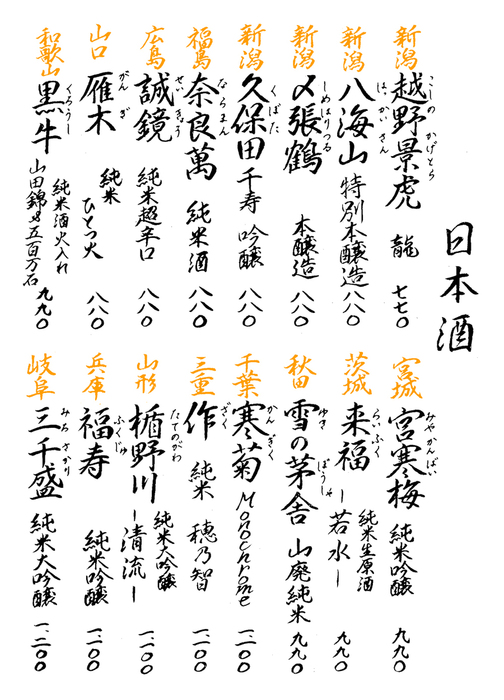 日本酒
新潟
越野景虎 龍 七七〇
こしのかげとら
新潟
八海山 特別本醸造 八八〇
はっかいさん
新潟
〆張鶴 本醸造 八八〇
しめはりつる
新潟
久保田 千寿 吟醸 八八〇
くぼた
福島
奈良萬 純米酒 八八〇
ならまん
広島
誠鏡 純米超辛口 八八〇
せいきょう
山口
雁木 純米 ひとつ火 八八〇
がんぎ
和歌山
黒牛 純米酒火入れ
くろうし
山田錦&五百万石 九九〇
宮城
宮寒梅 純米吟醸 九九〇
みやかんばい
茨城
来福 純米生原酒
らいふく
ー若水ー 九九〇
秋田
雪の茅舎 山廃純米 九九〇
ゆきぼうしゃ
千葉
寒菊 Monochrome 一、一〇〇
かんぎく
三重
作 純米 穂乃智 一、一〇〇
ざく
山形
楯野川 純米大吟醸
たてのがわ
ー清流ー 一、一〇〇
兵庫
福寿 純米吟醸 一、一〇〇
ふくじゅ
岐阜
三千盛 純米大吟醸 一、二〇〇
みちさかり